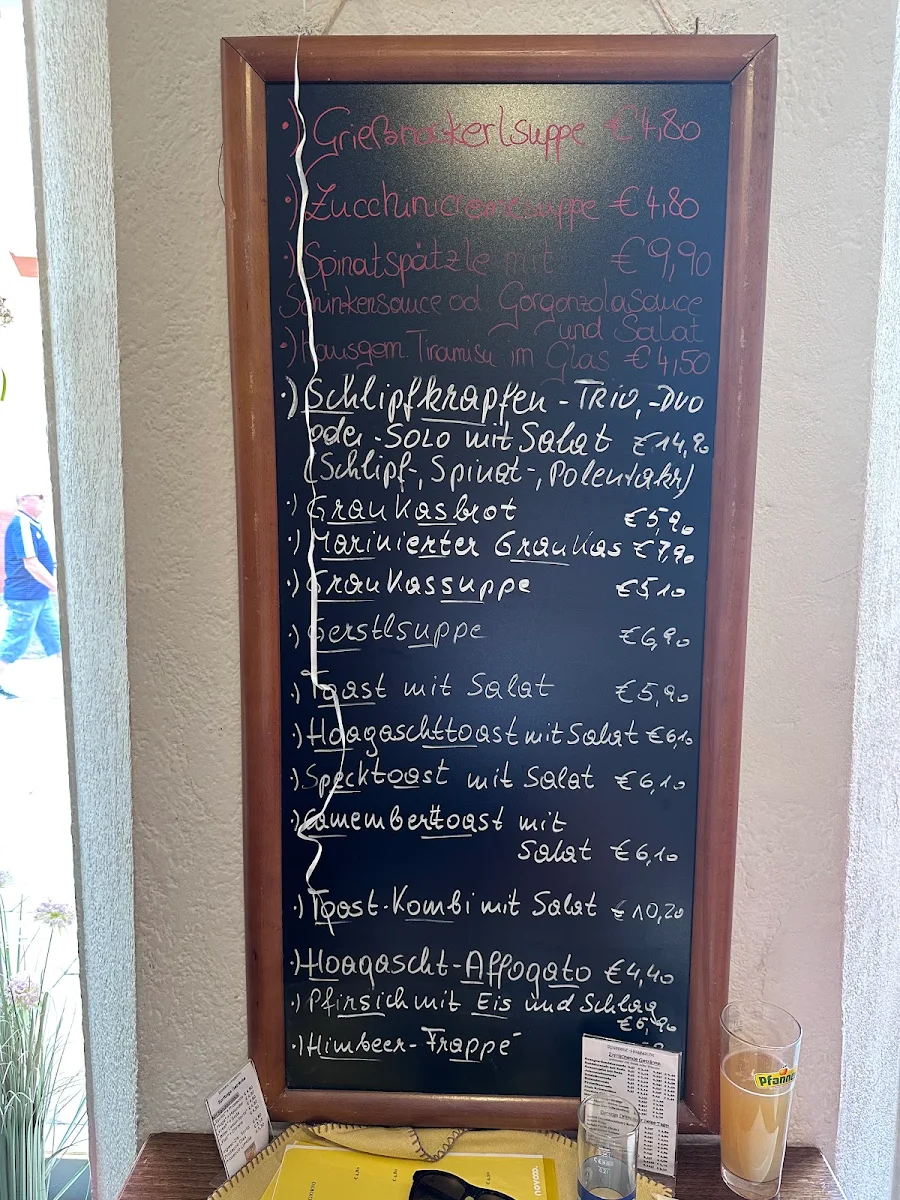 ·) Grießnockerlsuppe €4,80
·) Zucchinicremesuppe €4,80
·) Spinatspätzle mit €9,90
Schinkensauce od Gorgonzolasauce
und Salat
·) hausgem. Tiramisu im Glas €4,50
·) Schlipfkrapfen - Trio, -Duo
oder -Solo mit Salat €14,90
(Schlipf-, Spinat-, Polentakr)
·) Graukasbrot €5,90
·) Marinierter Graukas €7,90
·) Graukassuppe €5,10
·) Gerstlsuppe €6,90
·) Toast mit Salat €5,90
·) Hoagaschttoast mit Salat €6,10
·) Specktoast mit Salat €6,10
·) Camemberttoast mit
Salat €6,10
·) Toast-Kombi mit Salat €10,20
·) Hoagascht-Affogato €4,40
·) Pfirsich mit Eis und Schlag
€6,90
·) Himbeer-Frappé
Pfanner
novooo